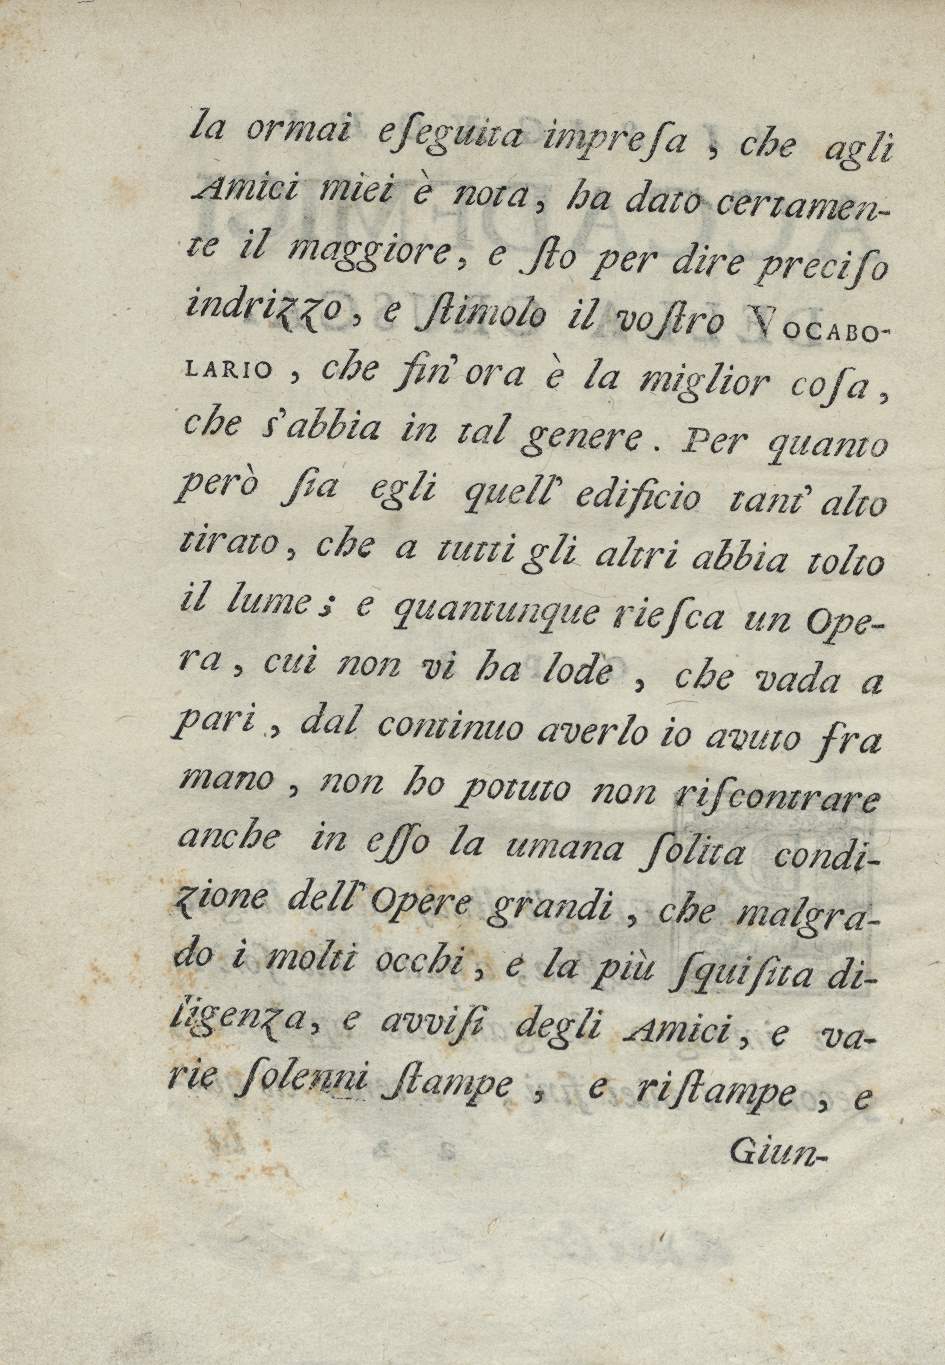 la ormai eſeguita impreſa , che agli
Amici miei è nota, ha dato certamen-
te il maggiore, e ſto per dire preciſo
indrizzo, e ſtimolo il voſtro VOCABO-
LARIO , che fin' ora è la miglior coſa,
che s'abbia in tal genere. Per quanto
però ſia egli quell' edificio tant' alto
tirato, che a tutti gli altri abbia tolto
il lume; e quantunque rieſca un Ope-
ra, cui non vi ha lode , che vada a
pari , dal continuo averlo io avuto fra
mano , non ho potuto non riſcontrare
anche in eſſo la umana ſolita condi-
zione dell' Opere grandi , che malgra-
do i molti occhi, e la più ſquiſita di-
ligenza, e avviſi degli Amici, e va-
rie ſolenni ſtampe , e riſtampe , e
Giun-